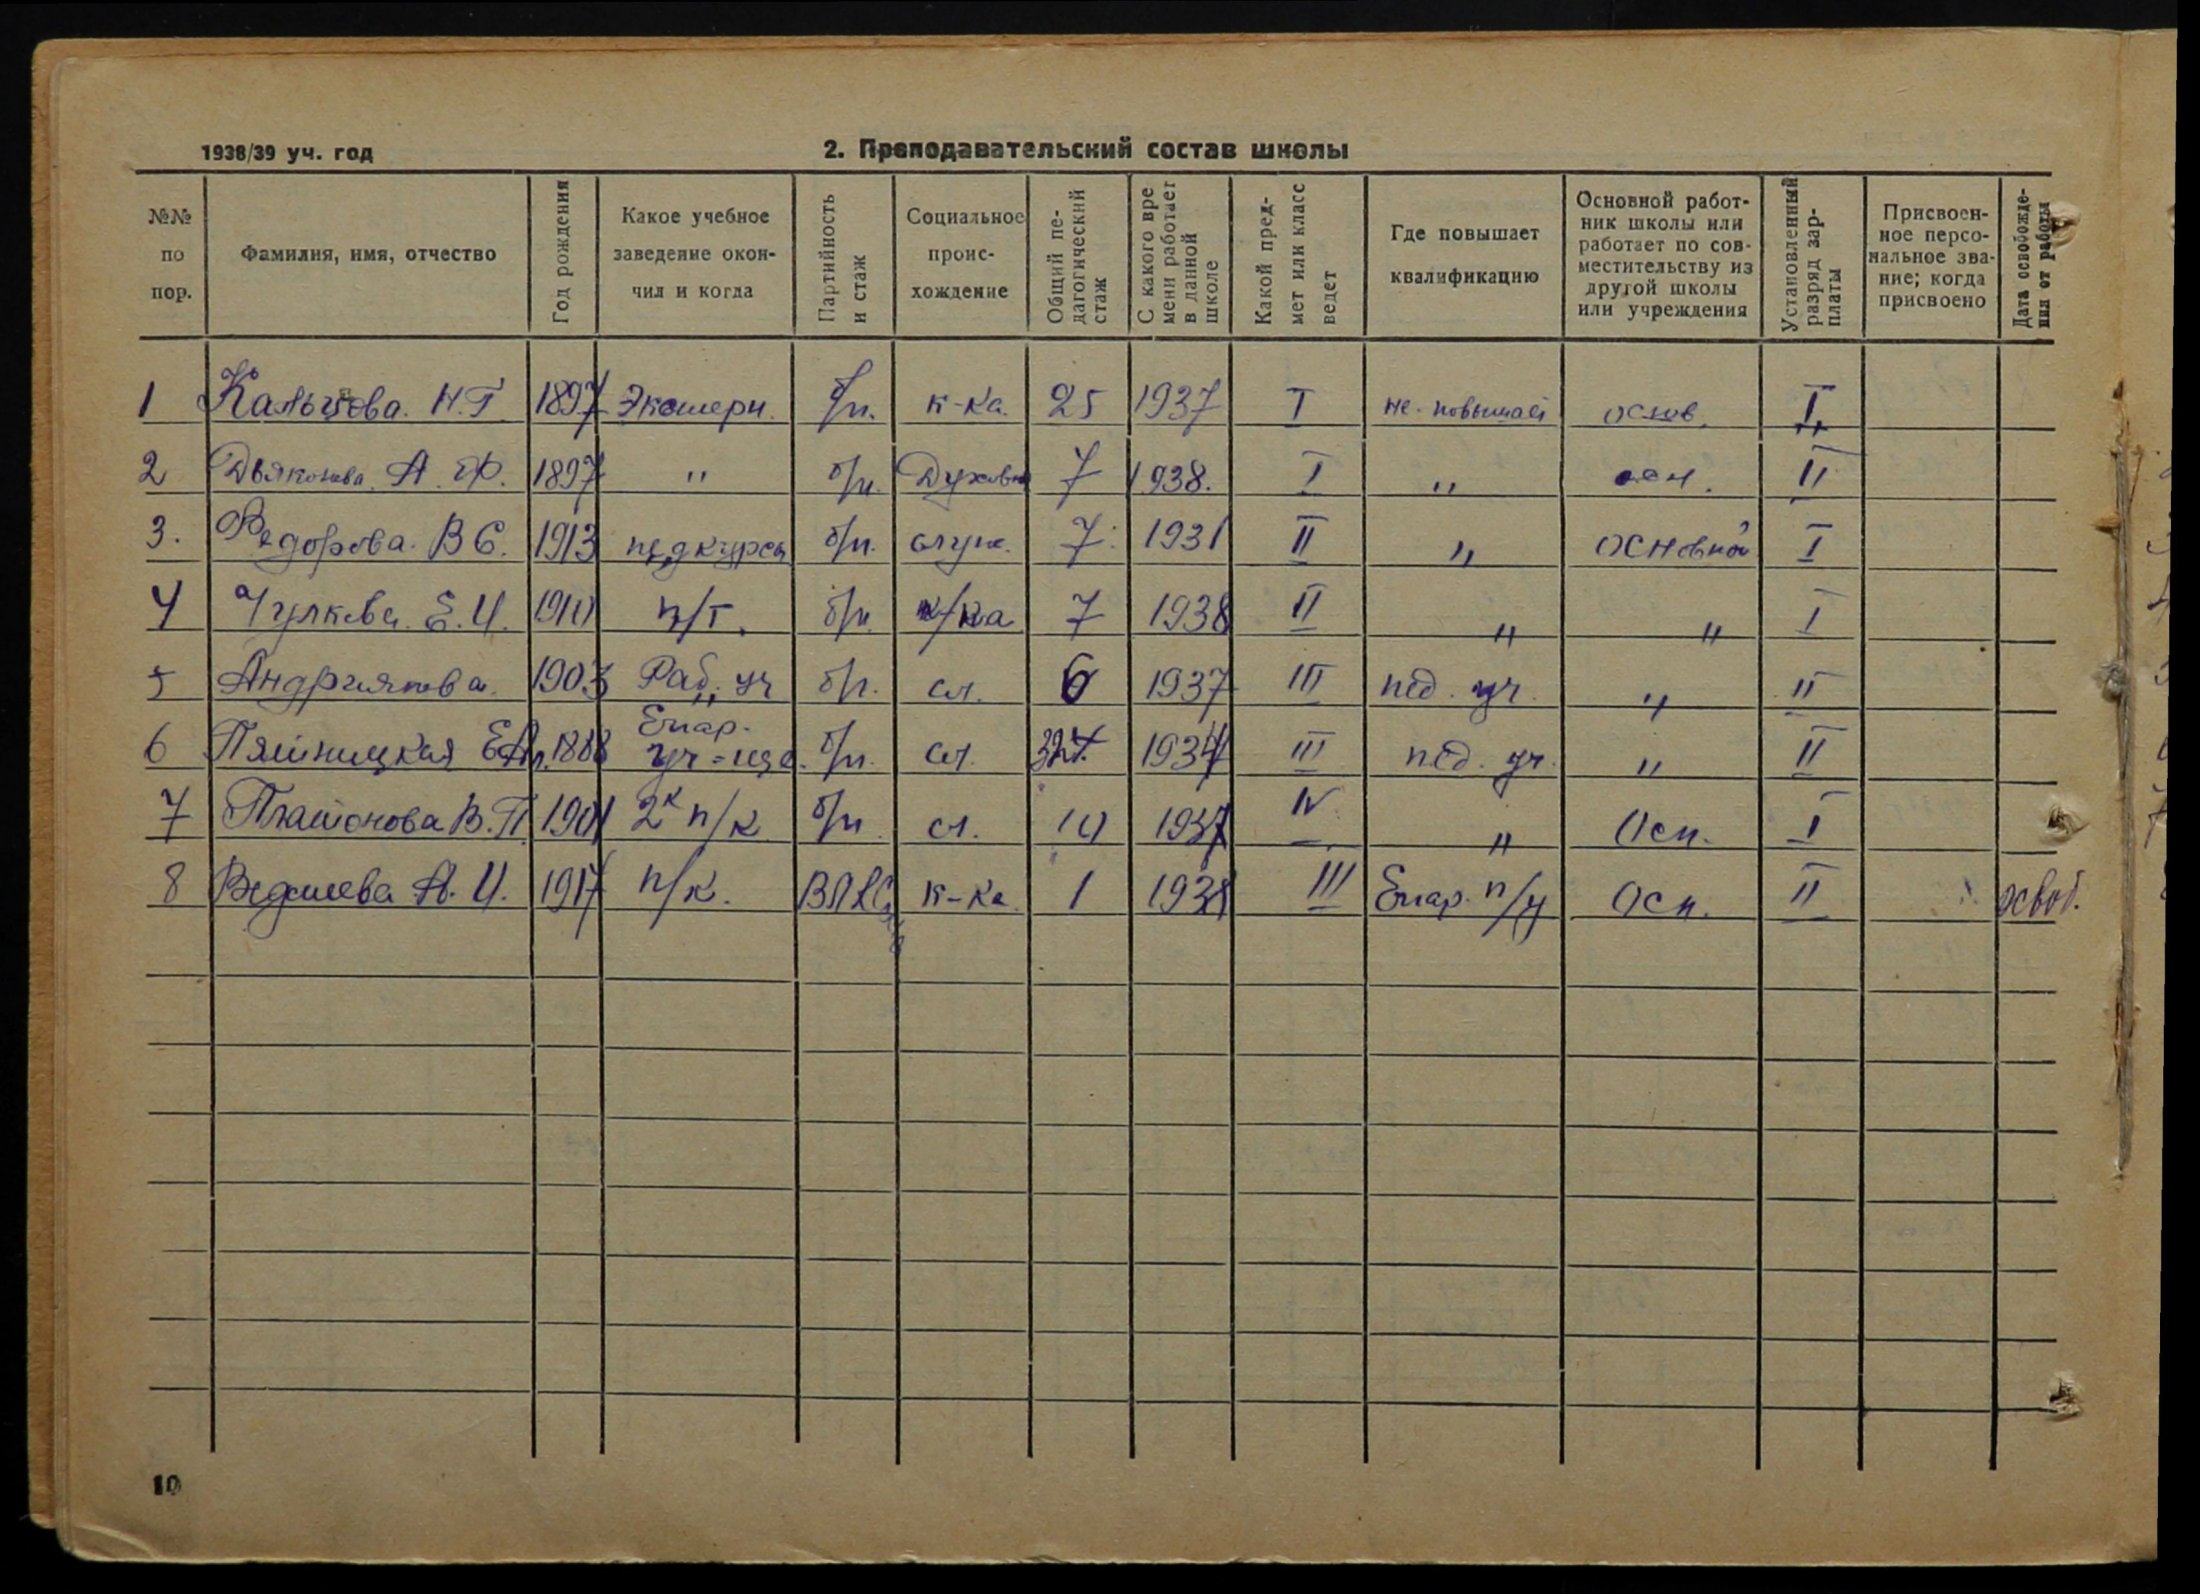 1938/39 уч. год
2. Преподавательский состав школы
№№ по пор.
Фамилия, имя, отчество
Год рождения
Какое учебное заведение окончил и когда
Партийность и стаж
Социальное происхождение
Общий педагогический стаж
С какого времени работает в данной школе
Какой предмет или класс ведет
Где повышает квалификацию
Основной работник школы или работает по совместительству из другой школы или учреждения
Установленный разряд зарплаты
Присвоенное персональное звание; когда присвоено
Дата освобождения от работы
1 Кальцова. Н.Г. 1897 Экстерн. б/п. к-ка. 25 1937 I не повышает основ. I
2 Дьяконова А. Ф. 1897 " б/п. Духовн 7 1938. I " осн. II
3. Федорова. В С. 1913 педкурсы б/п. служ. 7. 1931 II " основной I
4 Чулкова. Е. И. 1910 п/т. б/п. к/ка 7 1938 II " " I
5 Андриянова. 1903 Раб. уч б/п. сл. 6 1937 III пед. уч. " II
6 Пятницкая Е 1888 Епар. уч-ще. б/п. сл. 1934 III пед. уч. " II
7 Платонова В. П. 1901 2к п/к б/п. сл. 10 1937 IV " Осн. I
8 А. И. 1917 п/к. к-ка. 1 1938 III Епар. Осн. II освоб.
10